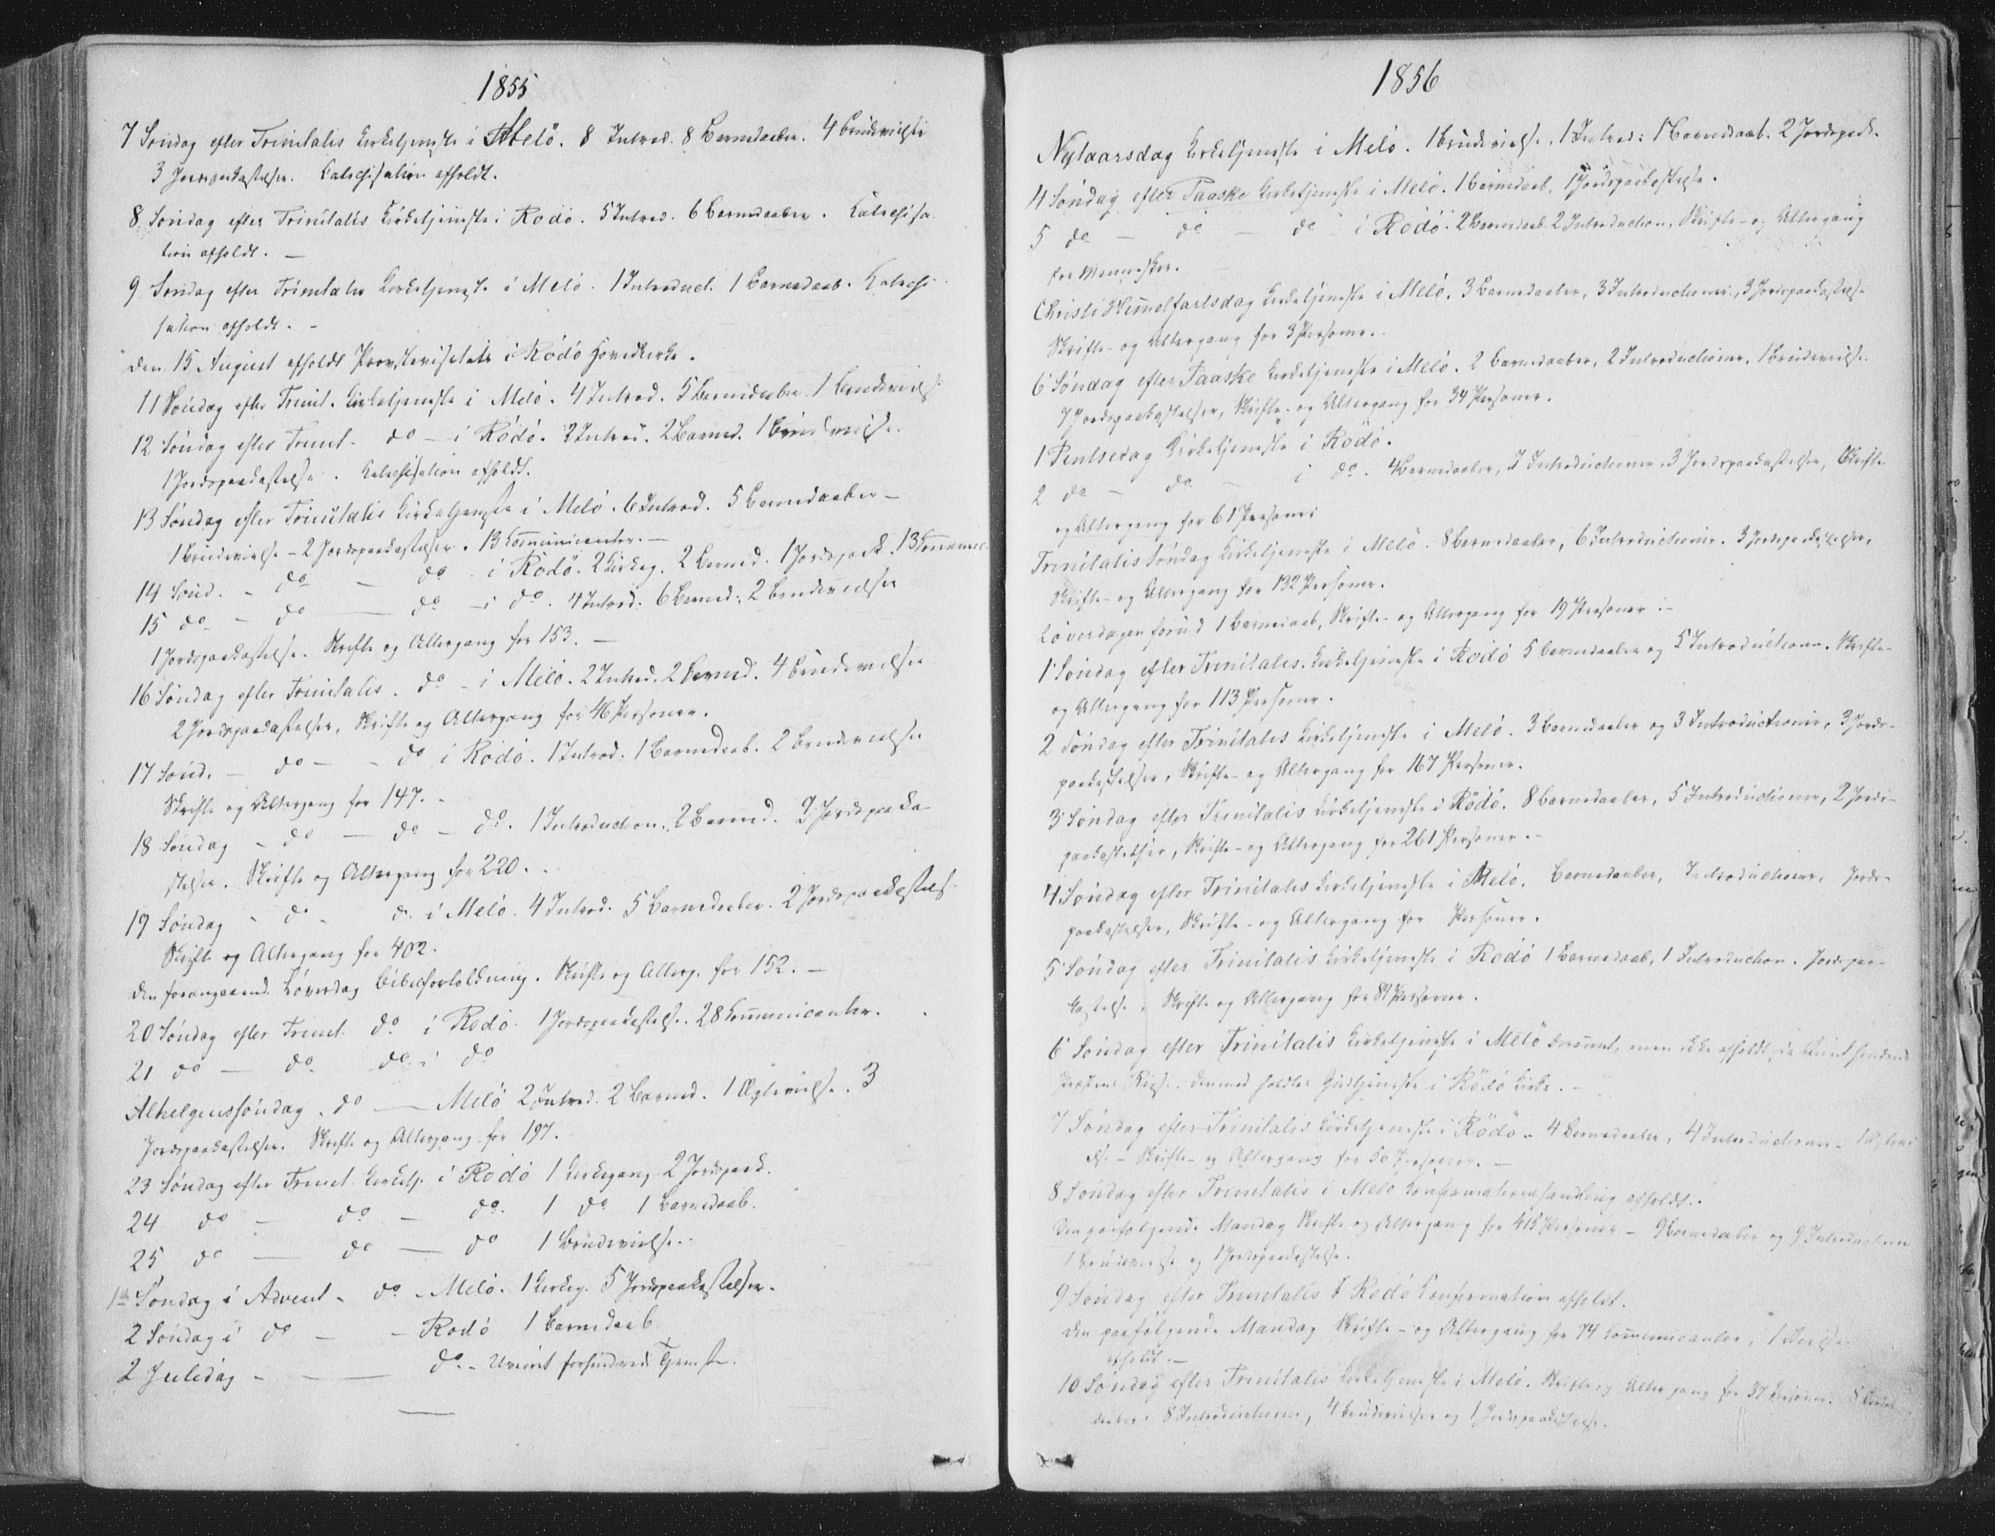 1855
7 Søndag efter Trinitatis Kirketjeneste i Melö. 8 Introd. 8 Barnedaaber. 4 Brudevielser
3 Jordpaakastelser. Katechisation afholdt.
8 Søndag efter Trinitatis Kirketjeneste i Rödö. 5 Introd. 6 Barnedaaber. Katechisa-
tion afholdt. —
9 Søndag efter Trinitatis Kirketjeneste i Melö. 1 Introduct. 1 Barnedaab. Katechi-
sation afholdt. -
Den 15 August afholdt Provstevisitats i Rödö Hovedkirke.
11 Søndag efter Trinit. Kirketjeneste i Melö. 4 Introd. 5 Barnedaaber. 1 Brudevielse
12 Søndag efter Trinit. do — i Rödö. 2 Introd. 2 Barned. 1 Brudevielse.
1 Jordspaakastelse. Katechisation afholdt.
13 Søndag efter Trinitatis Kirketjeneste i Melö. 6 Introd. 5 Barnedaaber —
1 Brudevielse - 2 Jordspaakastelser. 13 Communicanter. —
14 Sönd. - do — do. i Rödö. 2 Kirkeg. 2 Barned. 1 Jordspaak. 13 Commun.
15 do - do — do - i do. 4 Introd: 6 Barned: 2 Brudevielser
1 Jordspaakastelse. Skrifte og Altergang for 153. —
16 Søndag efter Trinitatis. do - i Melö. 2 Introd. 2 Barned. 4 Brudevielser
2 Jordspaakastelser, Skrifte og Altergang for 46 Personer.
17 Sönd. — do — - do i Rödö. 1 Introd. 1 Barnedaab. 2 Brudevielser
Skrifte og Altergang for 147. -
18 Søndag - do — do — do. 1 Introduction. 2 Barned. 9 Jordspaaka-
stelser. Skrifte og Altergang for 220. -
19 Søndag - do - d. i Melö. 4 Introd. 5 Barnedaaber. 2 Jordspaakastels.
Skrifte og Altergang for 402.
Den foregaaend. Løverdag Bibelfortolkning. Skrifte og Alterg. for 152. —
20 Søndag efter Trinit. do. i Rödö. 1 Jordspaakastelse. 28 Communicanter.
21 do — do do. i do
Alhelgenssøndag. do — Melö 2 Introd. 2 Barned. 1 Ægtevielse. 3
Jordspaakastelser. Skrifte og Altergang for 197.
23 Søndag efter Trinit. Kirketj. i Rödö 1 Kirkegang 2 Jordspaak.
24 do — do — do. 1 do 1 Barnedaab.
25 do — do — do 1 Brudevielse.
1ste Søndag i Advent - do - Melö. 1 Kirkeg. 5 Jordspaakastelser.
2 Søndag i do — - Rodö 1 Barnedaab
2 Juledag - — do. - Uveiret forhindrede Tjeneste.
1856
Nytaarsdag Kirketjeneste i Melö. 1 Brudevielse. 1 Introd: 1 Barnedaab. 2 Jordspaak.
4 Søndag efter Paaske Kirketjeneste i Melö. 1 Barnedaab. 1 Jordspaakastelse.
5 do — do — do i Rödö. 2 Barnedaab. 2 Introduction, Skrifte- og Altergang
for Mennesker.
Christi Himmelfartsdag Kirketjeneste i Melö. 3 Barnedaaber, 3 Introductioner, 3 Jordspaakastelse
Skrifte- og Altergang for 3 Personer.
6 Søndag efter Paaske Kirketjeneste i Melö. 2 Barnedaaber, 2 Introductioner, 1 Brudevielse
7 Jordspaakastelser, Skrifte- og Altergang for 34 Personer.
1 Pintsedag Kirketjeneste i Rödö.
2 do — do — i do. 4 Barnedaaber, 7 Introductioner, 3 Jordspaakastelser, Skrifte
og Altergang for 61 Personer
Trinitatis Søndag Kirketjeneste i Melö. 8 Barnedaaber, 6 Introductioner. 3 Jordspaakastelser,
Skrifte- og Altergang for 132 Personer.
Løverdagen forud 1 Barnedaab, Skrifte- og Altergang for 19 Personer. -
1 Søndag efter Trinitatis. Kirketjeneste i Rödö 5 Barnedaaber og 5 Introductioner. Skrifte-
og Altergang for 113 Personer.
2 Søndag efter Trinitatis Kirketjeneste i Melö. 3 Barnedaaber og 3 Introductioner, 3 Jords-
paakastelser, Skrifte- og Altergang for 167 Personer.
3 Søndag efter Trinitatis Kirketjeneste i Rödö. 8 Barnedaaber, 5 Introductioner, 2 Jords-
paakastelser, Skrifte- og Altergang for 261 Personer. -
4 Søndag efter Trinitatis Kirketjeneste i Melö. Barnedaaber, Introductioner, Jords-
paakastelser, Skrifte- og Altergang for Personer.
5 Søndag efter Trinitatis Kirketjeneste i Rödö 1 Barnedaab, 1 Introduction. Jordspaa-
kastelse, Skrifte og Altergang for 84 Personer.
6 Søndag efter Trinitatis Kirketjeneste i Melö berammet, men ikke afholdt, da Uveir hindrede
Præstens Reise. Derimod holdtes Gudstjeneste i Rödö Kirke. -
7 Søndag efter Trinitatis Kirketjeneste i Rödö - 4 Barnedaaber, 4 Introductioner - 1 Ægtevi-
else - Skrifte- og Altergang for 50 Personer. —
8 Søndag efter Trinitatis i Melö Confirmationshandling afholdt.
Den paafølgende Mandag Skrifte og Altergang for 415 Personer - 9 Barnedaaber og 9 Introductioner
1 Brudevielse og 1 Jordspaakastelse.
9 Søndag efter Trinitatis i Rödö Confirmation afholdt.
Den paafølgende Mandag Skrifte- og Altergang for 74 Communicanter,
afholdt. —
10 Søndag efter Trinitatis Kirketjeneste i Melö. Skrifte og Altergang for 37 Personer. 8 Barne-
daaber. 8 Introductioner, 4 Brudevielser og 1 Jordspaakastelse.